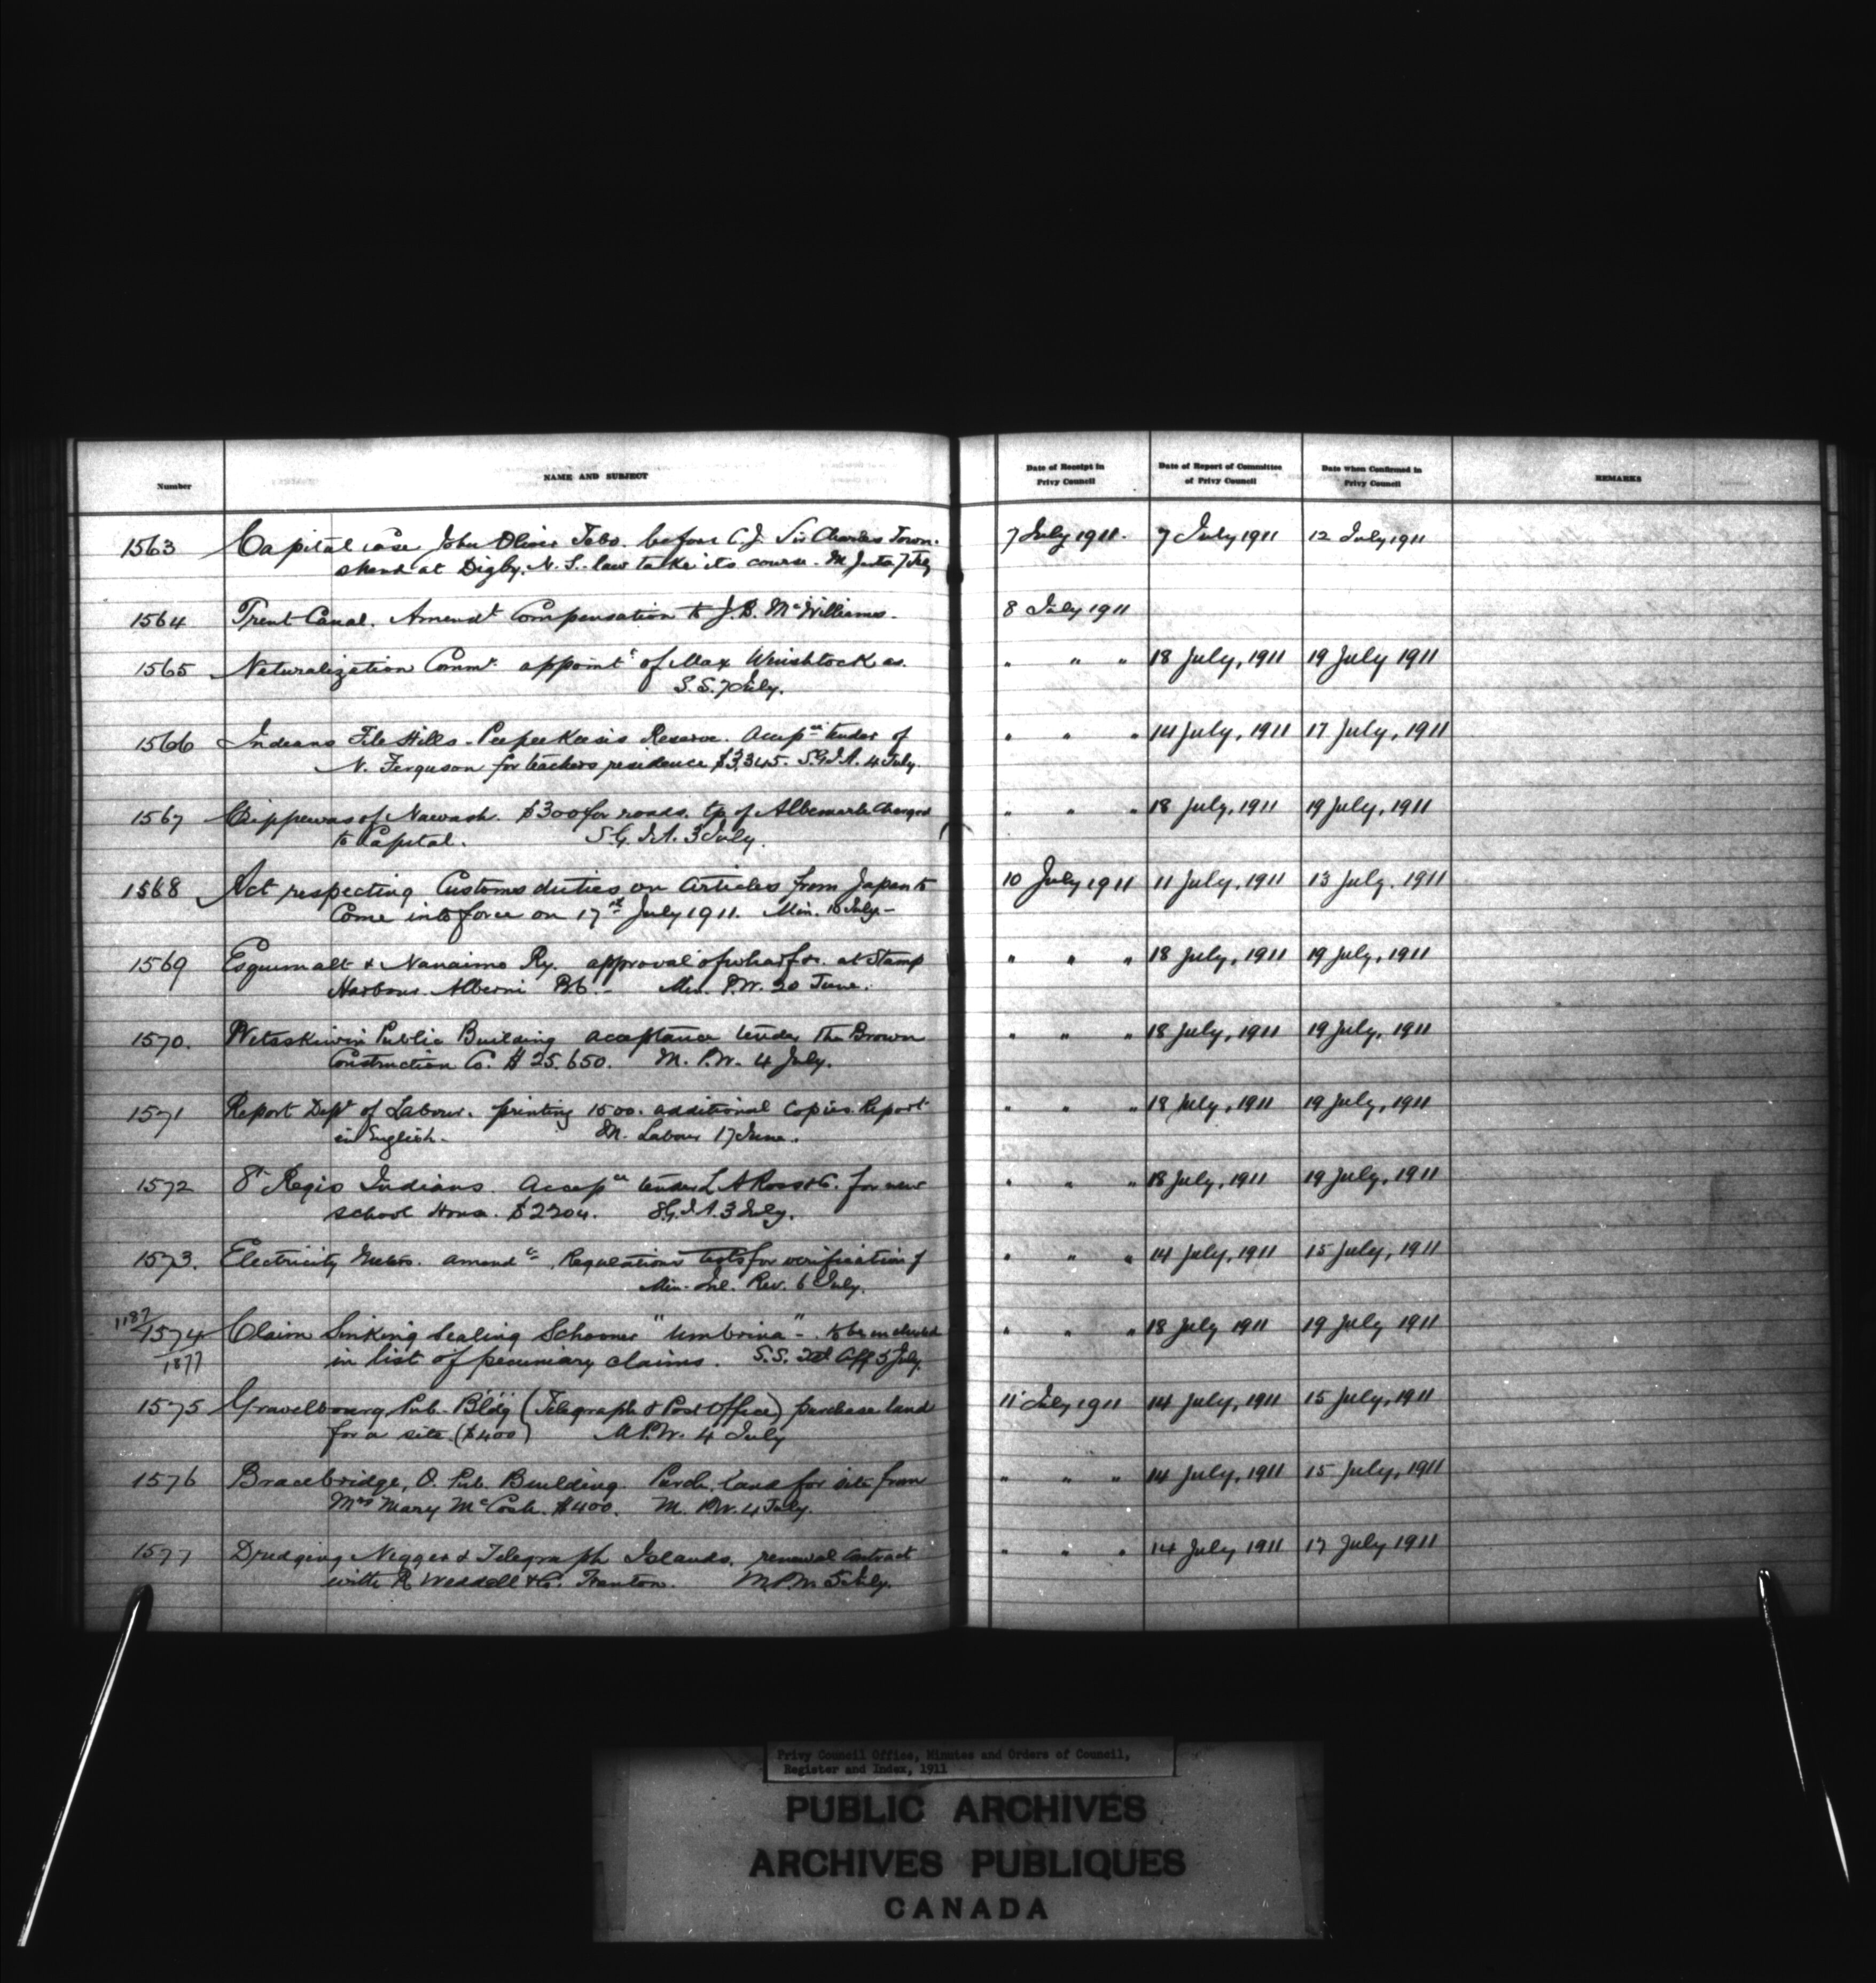 Number NAME AND SUBJECT Date of Receipt in Privy Council Date of Report of Committee of Privy Council Date when Confirmed in Privy Council REMARKS
1563 Capital case John Oliver Tebo. before C.J. Sir Charles Town- 7 July 1911. 7 July 1911 12 July 1911
shend at Digby. N.S. law take its course. M Justice 7 July
1564 Trent Canal. Amendt Compensation to J.B. McWilliams. 8 July 1911
1565 Naturalization Commr. appointt of Max as. " " " 18 July, 1911 19 July 1911
S.S. 7 July.
1566 Indians File Hills. Peepeekeesis Reserve. Accepce tender of " " " 14 July, 1911 17 July, 1911
N. Ferguson for teachers residence $3,345. S.G.I.A. 4 July
1567 Chippewas of Nawash. $300 for roads. tp of Albemarle charged " " " 18 July, 1911 19 July, 1911
to Capital. S.G.I.A. 3 July.
1568 Act respecting Customs duties on articles from Japan to 10 July 1911 11 July, 1911 13 July. 1911
Come into force on 17th July 1911. Min. 10 July -
1569 Esquimalt & Nanaimo Ry. approval of wharf &c. at Stamp " " " 18 July, 1911 19 July, 1911
Harbour. Alberni B.C. - Min. P.W. 20 June.
1570. Wetaskiwin Public Building acceptance tender The Brown " " " 18 July, 1911 19 July, 1911
Construction Co. $25.650. M. P.W. 4 July.
1571 Report Dept of Labour. printing 1500. additional Copies Report " " " 18 July, 1911 19 July, 1911
in English. M. Labour 17 June.
1572 St Regis Indians Accepce tender L A Ross & Co. for new " " " 18 July, 1911 19 July, 1911
school House. $2204. S.G.I.A. 3 July.
1573. Electricity Meters. amendt Regulations tests for verification of " " " 14 July, 1911 15 July, 1911
Min. Inl. Rev. 6 July.
1187/1574/1877 Claim Sinking Sealing Schooner "Umbrina" - to be included " " " 18 July 1911 19 July 1911
in list of pecuniary claims. S.S. Ext Aff 5 July.
1575 Gravelbourg Pub. Bldg (Telegraph & Post Office) purchase land 11 July 1911 14 July, 1911 15 July, 1911
for a site. ($400) M P.W. 4 July
1576 Bracebridge, O. Pub. Building. Purch. land for site from " " " 14 July, 1911 15 July, 1911
Mrs Mary McCosh. $400. M. P.W. 4 July.
1577 Dredging Nigger & Telegraph Islands. renewal contract " " " 14 July 1911 17 July 1911
with R Weddell & Co. Trenton. M.P.W. 5 July.
Privy Council Office, Minutes and Orders of Council,
Register and Index, 1911
PUBLIC ARCHIVES
ARCHIVES PUBLIQUES
CANADA